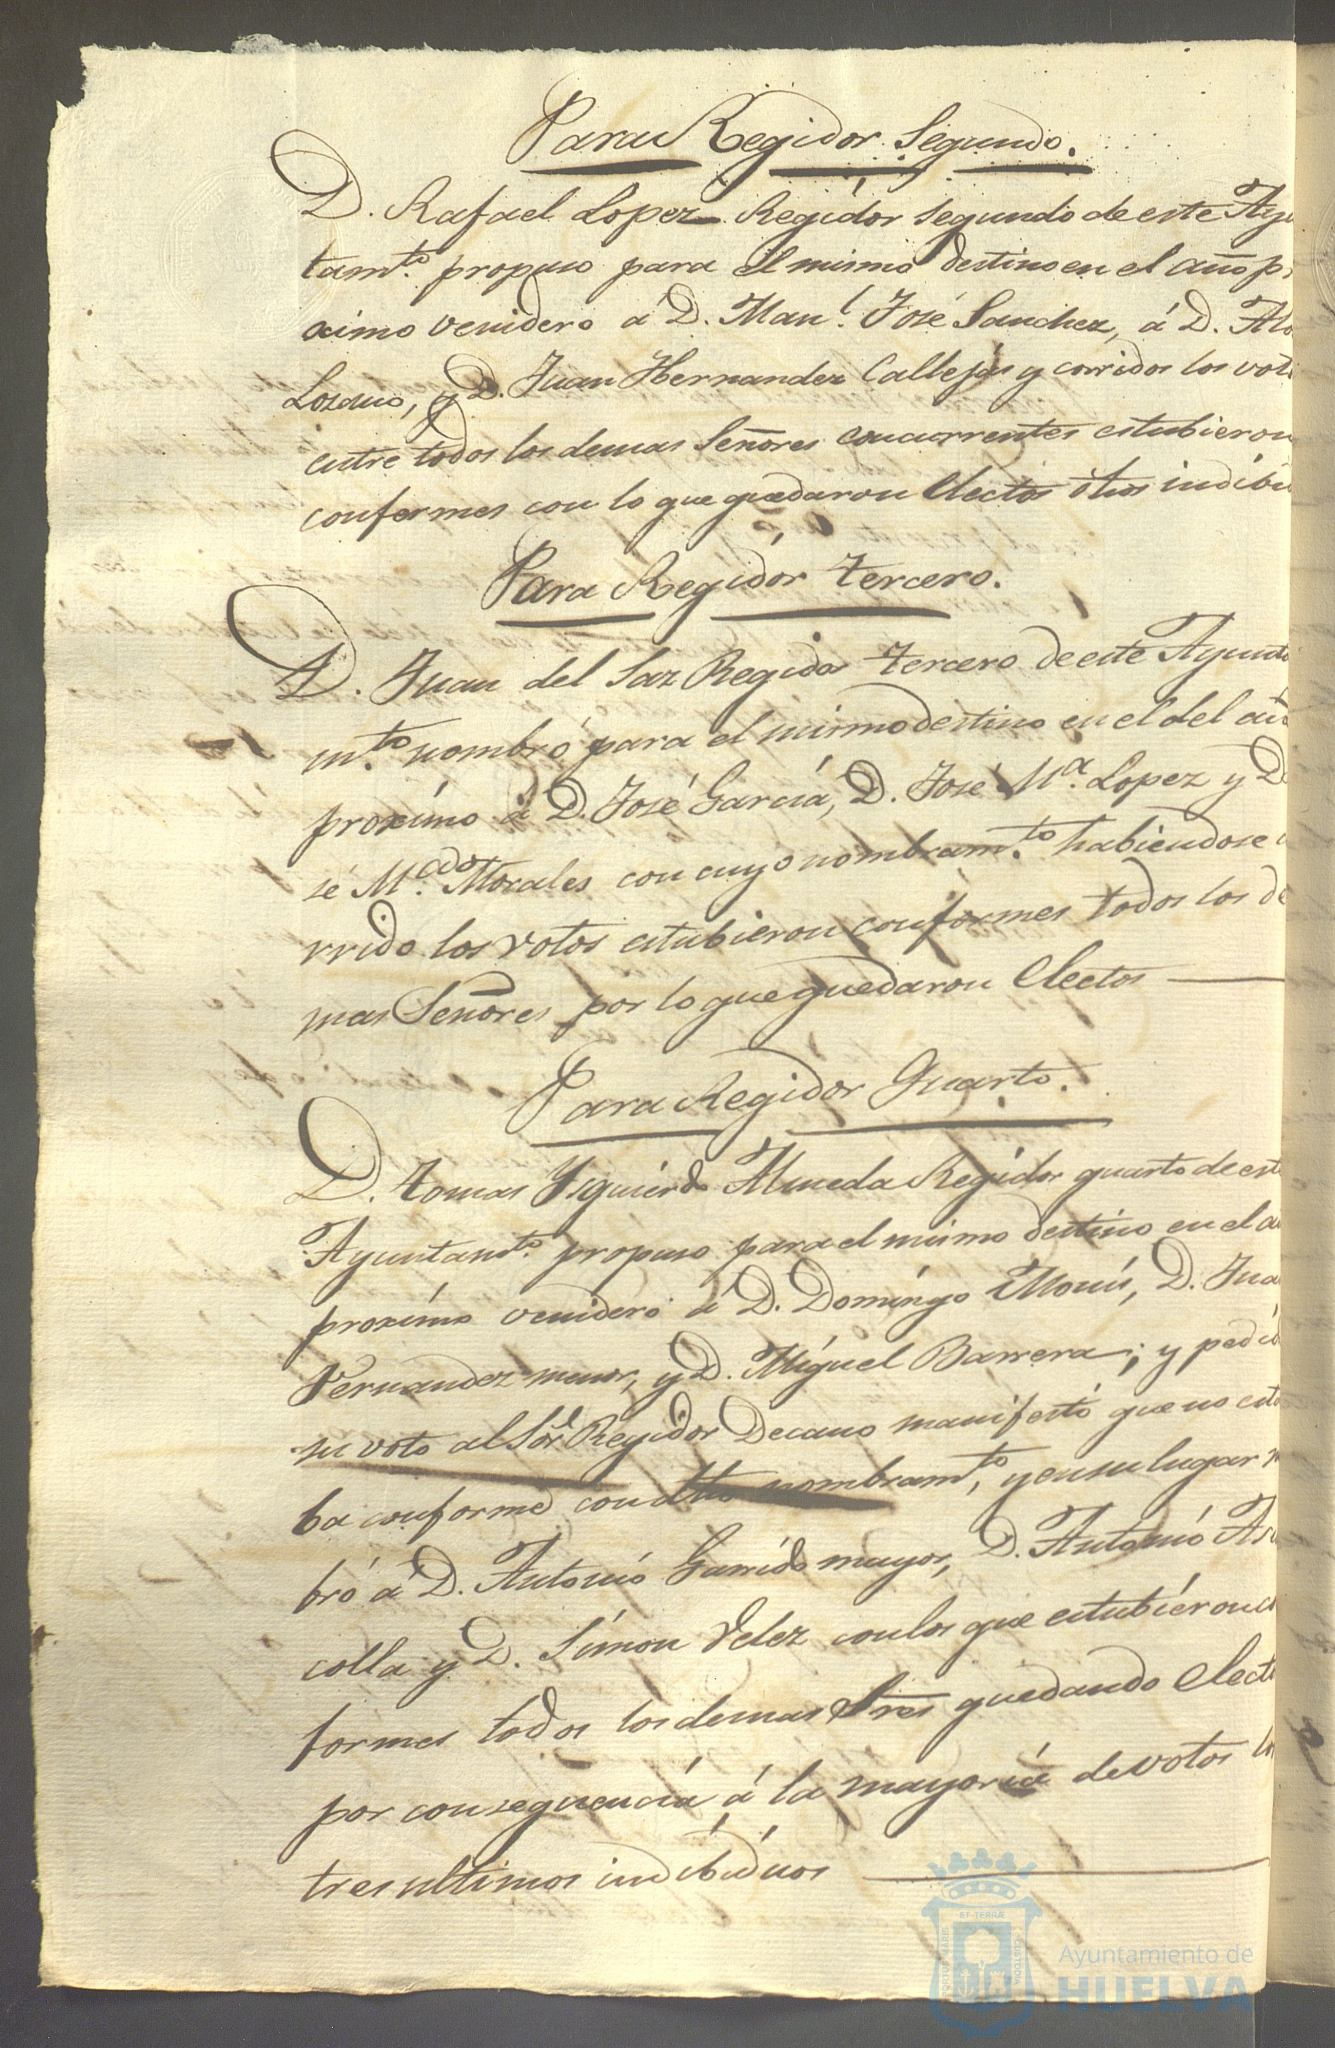 Para Regidor Segundo.
D. Rafael Lopez Regidor Segundo de este Ayu
tamto. propuso para el mismo destino en el año pr
oximo venidero á D. Manl. José Sanchez, á D. Alo
Lozano, y D. Juan Hernandez Callejas y corridos los vot
entre todos los demas Señores concurrentes estubieron
conformes con lo que quedaron Electos dhos indibi
Para Regidor tercero.
D. Juan del Saz Regidor tercero de este Ayunta
mto. nombró para el mismo destino en el del añ
proximo á D. José García, D. José Ma. Lopez y D
sé Mcado. Morales con cuyo nombramto. habiendose
rrido los votos estubieron conformes todos los de
mas Señores por lo que quedaron Electos
Para Regidor Quarto.
D. tomas Ysquierdo Almeda Regidor quarto de est
Ayuntamto. propuso para el mismo destino en el a
proximo venidero á D. Domingo Monis, D. Jua
Fernandez menor, y D. Miguel Barrera; y pedi
su voto al Sor. Regidor Decano manifestó que no esta
ba conforme con dho nombramto, y en su lugar n
bró á D. Antonio Garrido mayor, D. Antonio As
colla y D. Simon Velez con los que estubieron c
formes todos los demas Sres quedando elect
por consequencia á la mayoría de votos lo
tres ultimos indibiduos
Ayuntamiento de
HUELVA